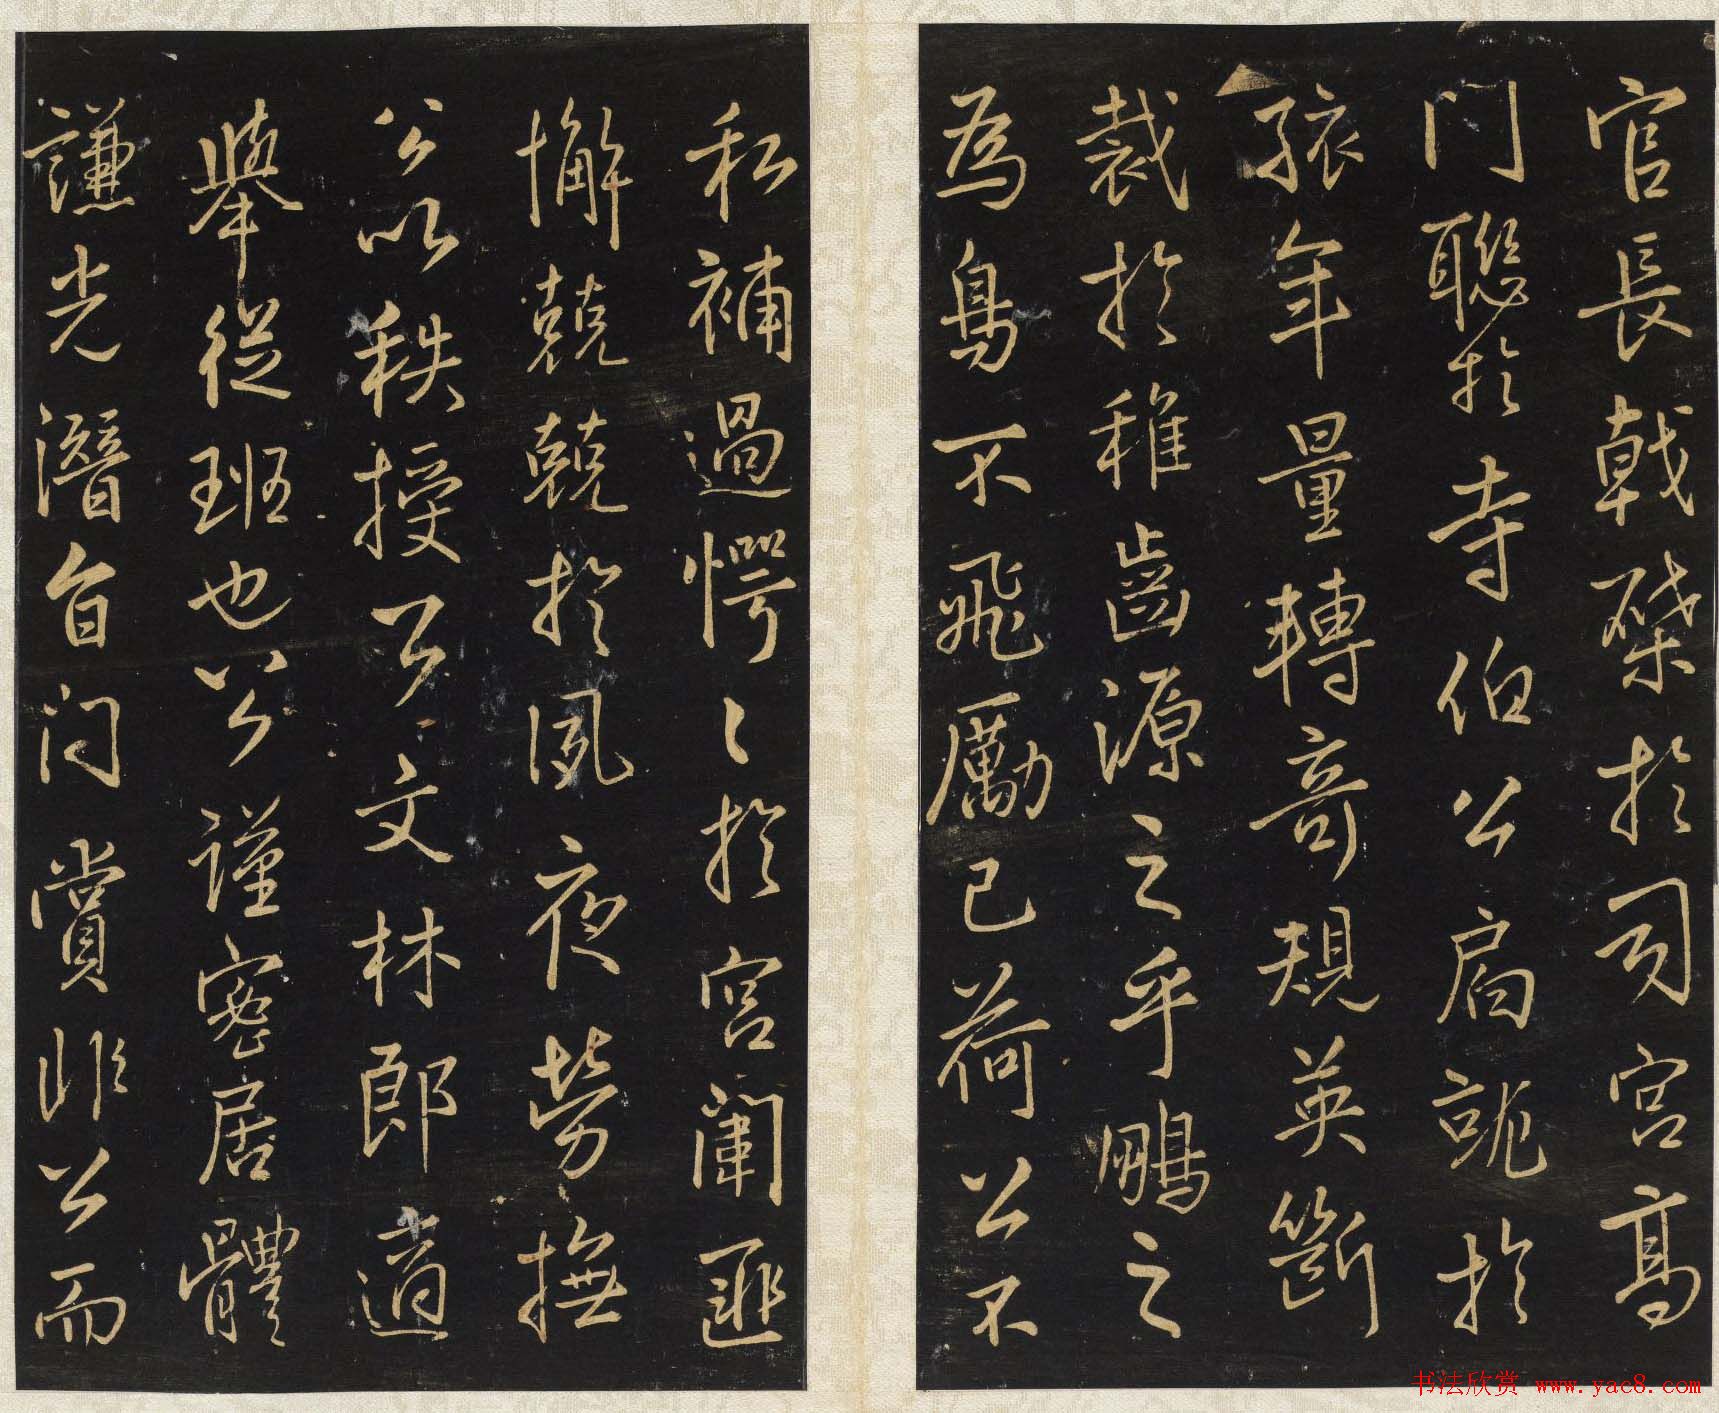 官長戟棨於司宮高
門聯於寺伯公扃詭於
孩年量轉奇規英斷
裁於稚齒源之乎鵬之
為鳥不飛勵已荷公不
私補過愕〻於宮闈匪
懈兢兢於夙夜勞撫
公以秩授公文林郎適
舉從班也公謹密居體
謙光潛自門賞非公而
书法欣赏 www.yac8.com